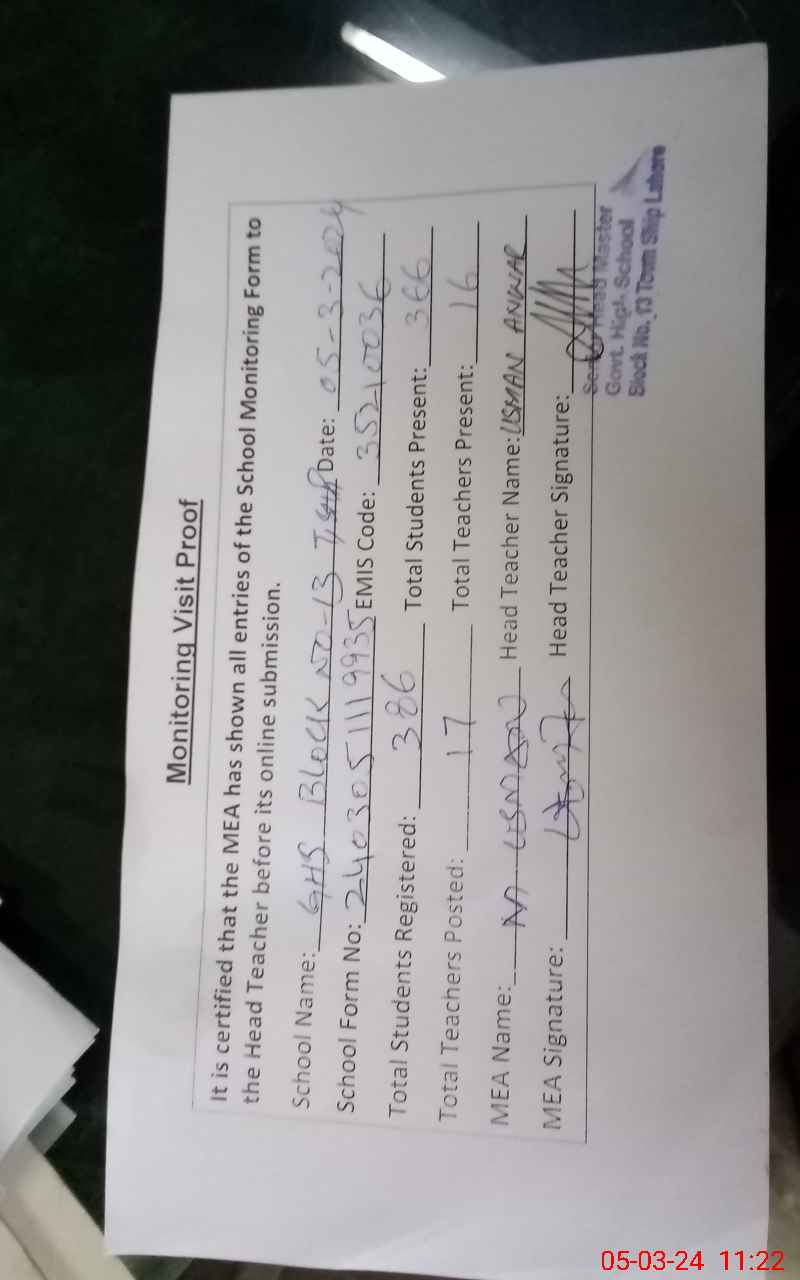 Monitoring Visit Proof
It is certified that the MEA has shown all entries of the School Monitoring Form to
the Head Teacher before its online submission.
School Name: GHS BLOCK NO-13 Date: 05-3-2024
School Form No: 2403051119935 EMIS Code: 35210036
Total Students Registered: 386 Total Students Present: 366
Total Teachers Posted: 17 Total Teachers Present: 16
MEA Name: M USMAN Head Teacher Name: USMAN ANWAR
MEA Signature: Head Teacher Signature:
Head Master
Govt. High School
Block No. 13 Town Ship Lahore
05-03-24 11:22